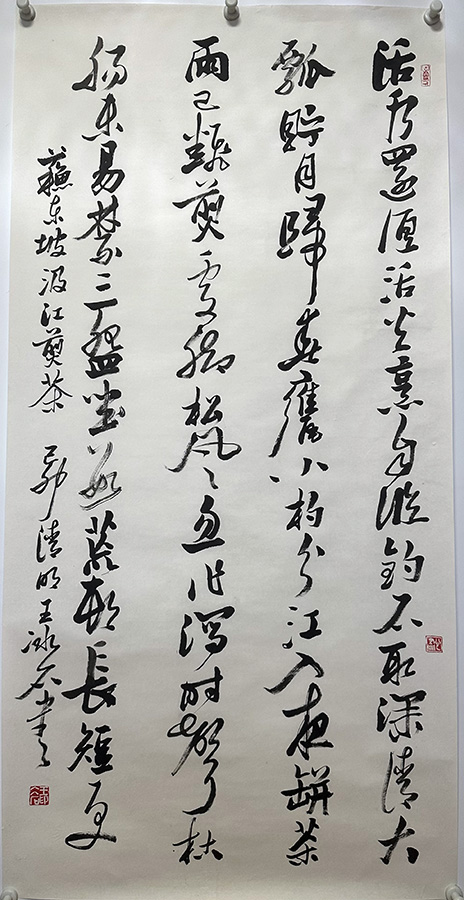 活水還須活火烹自臨釣石取深清大
瓢貯月歸春甕小杓分江入夜缾茶
雨已飜煎處腳松風忽作瀉時聲枯
腸未易禁三盌坐數荒邨長短更
蘇東坡汲江煎茶 清明王冰石書